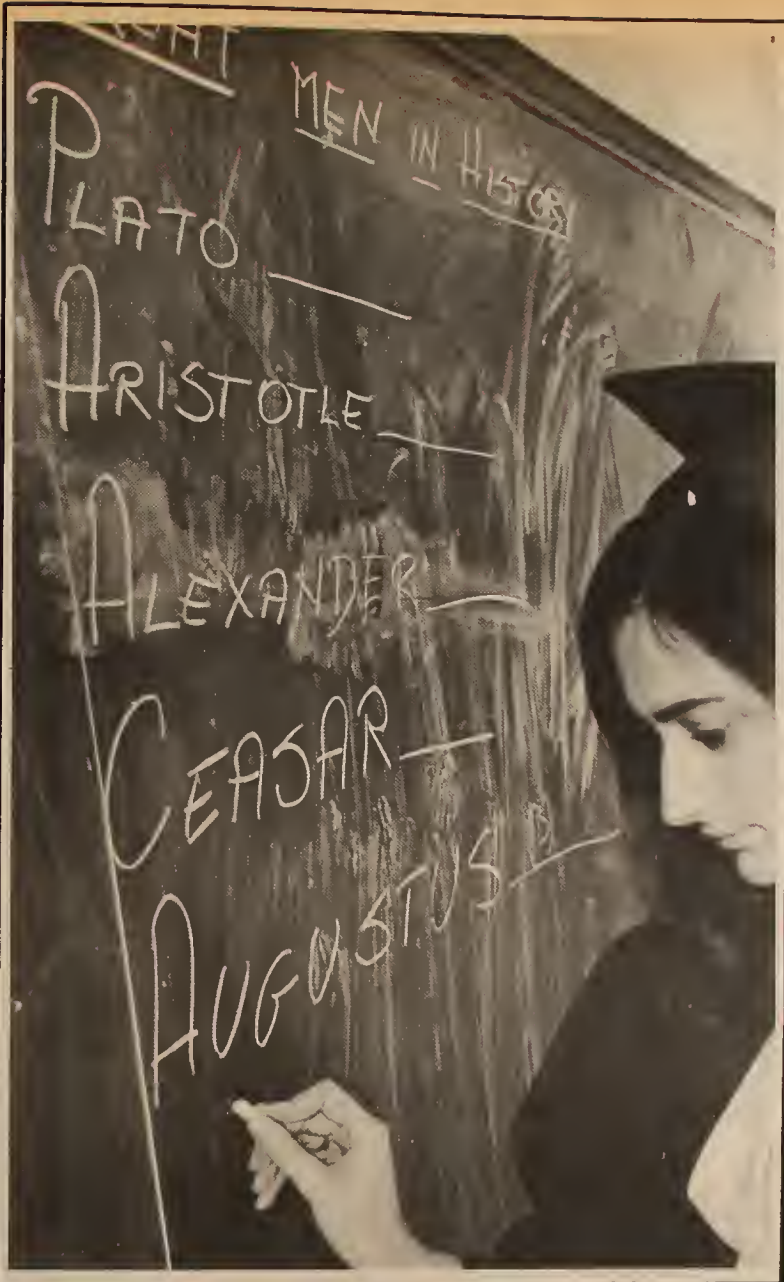 MEN IN HISTORY
PLATO
ARISTOTLE
ALEXANDER
CEASAR
AUGUSTUS